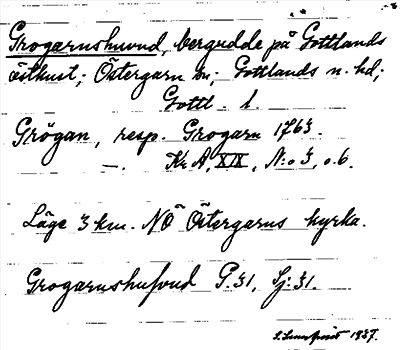 Grogarnshuvud, bergudde på Gottlands
östkust; Östergarn sn; Gottlands n. hd;
Gottl. l.
Grögan, resp. Grogarn 1763.
—. Kr. A, XIX, N:o 3, o. 6.
Läge 3 km. NO Östergarns kyrka.
Grogarnshufvud P. 31, Sj: 31.
1937.